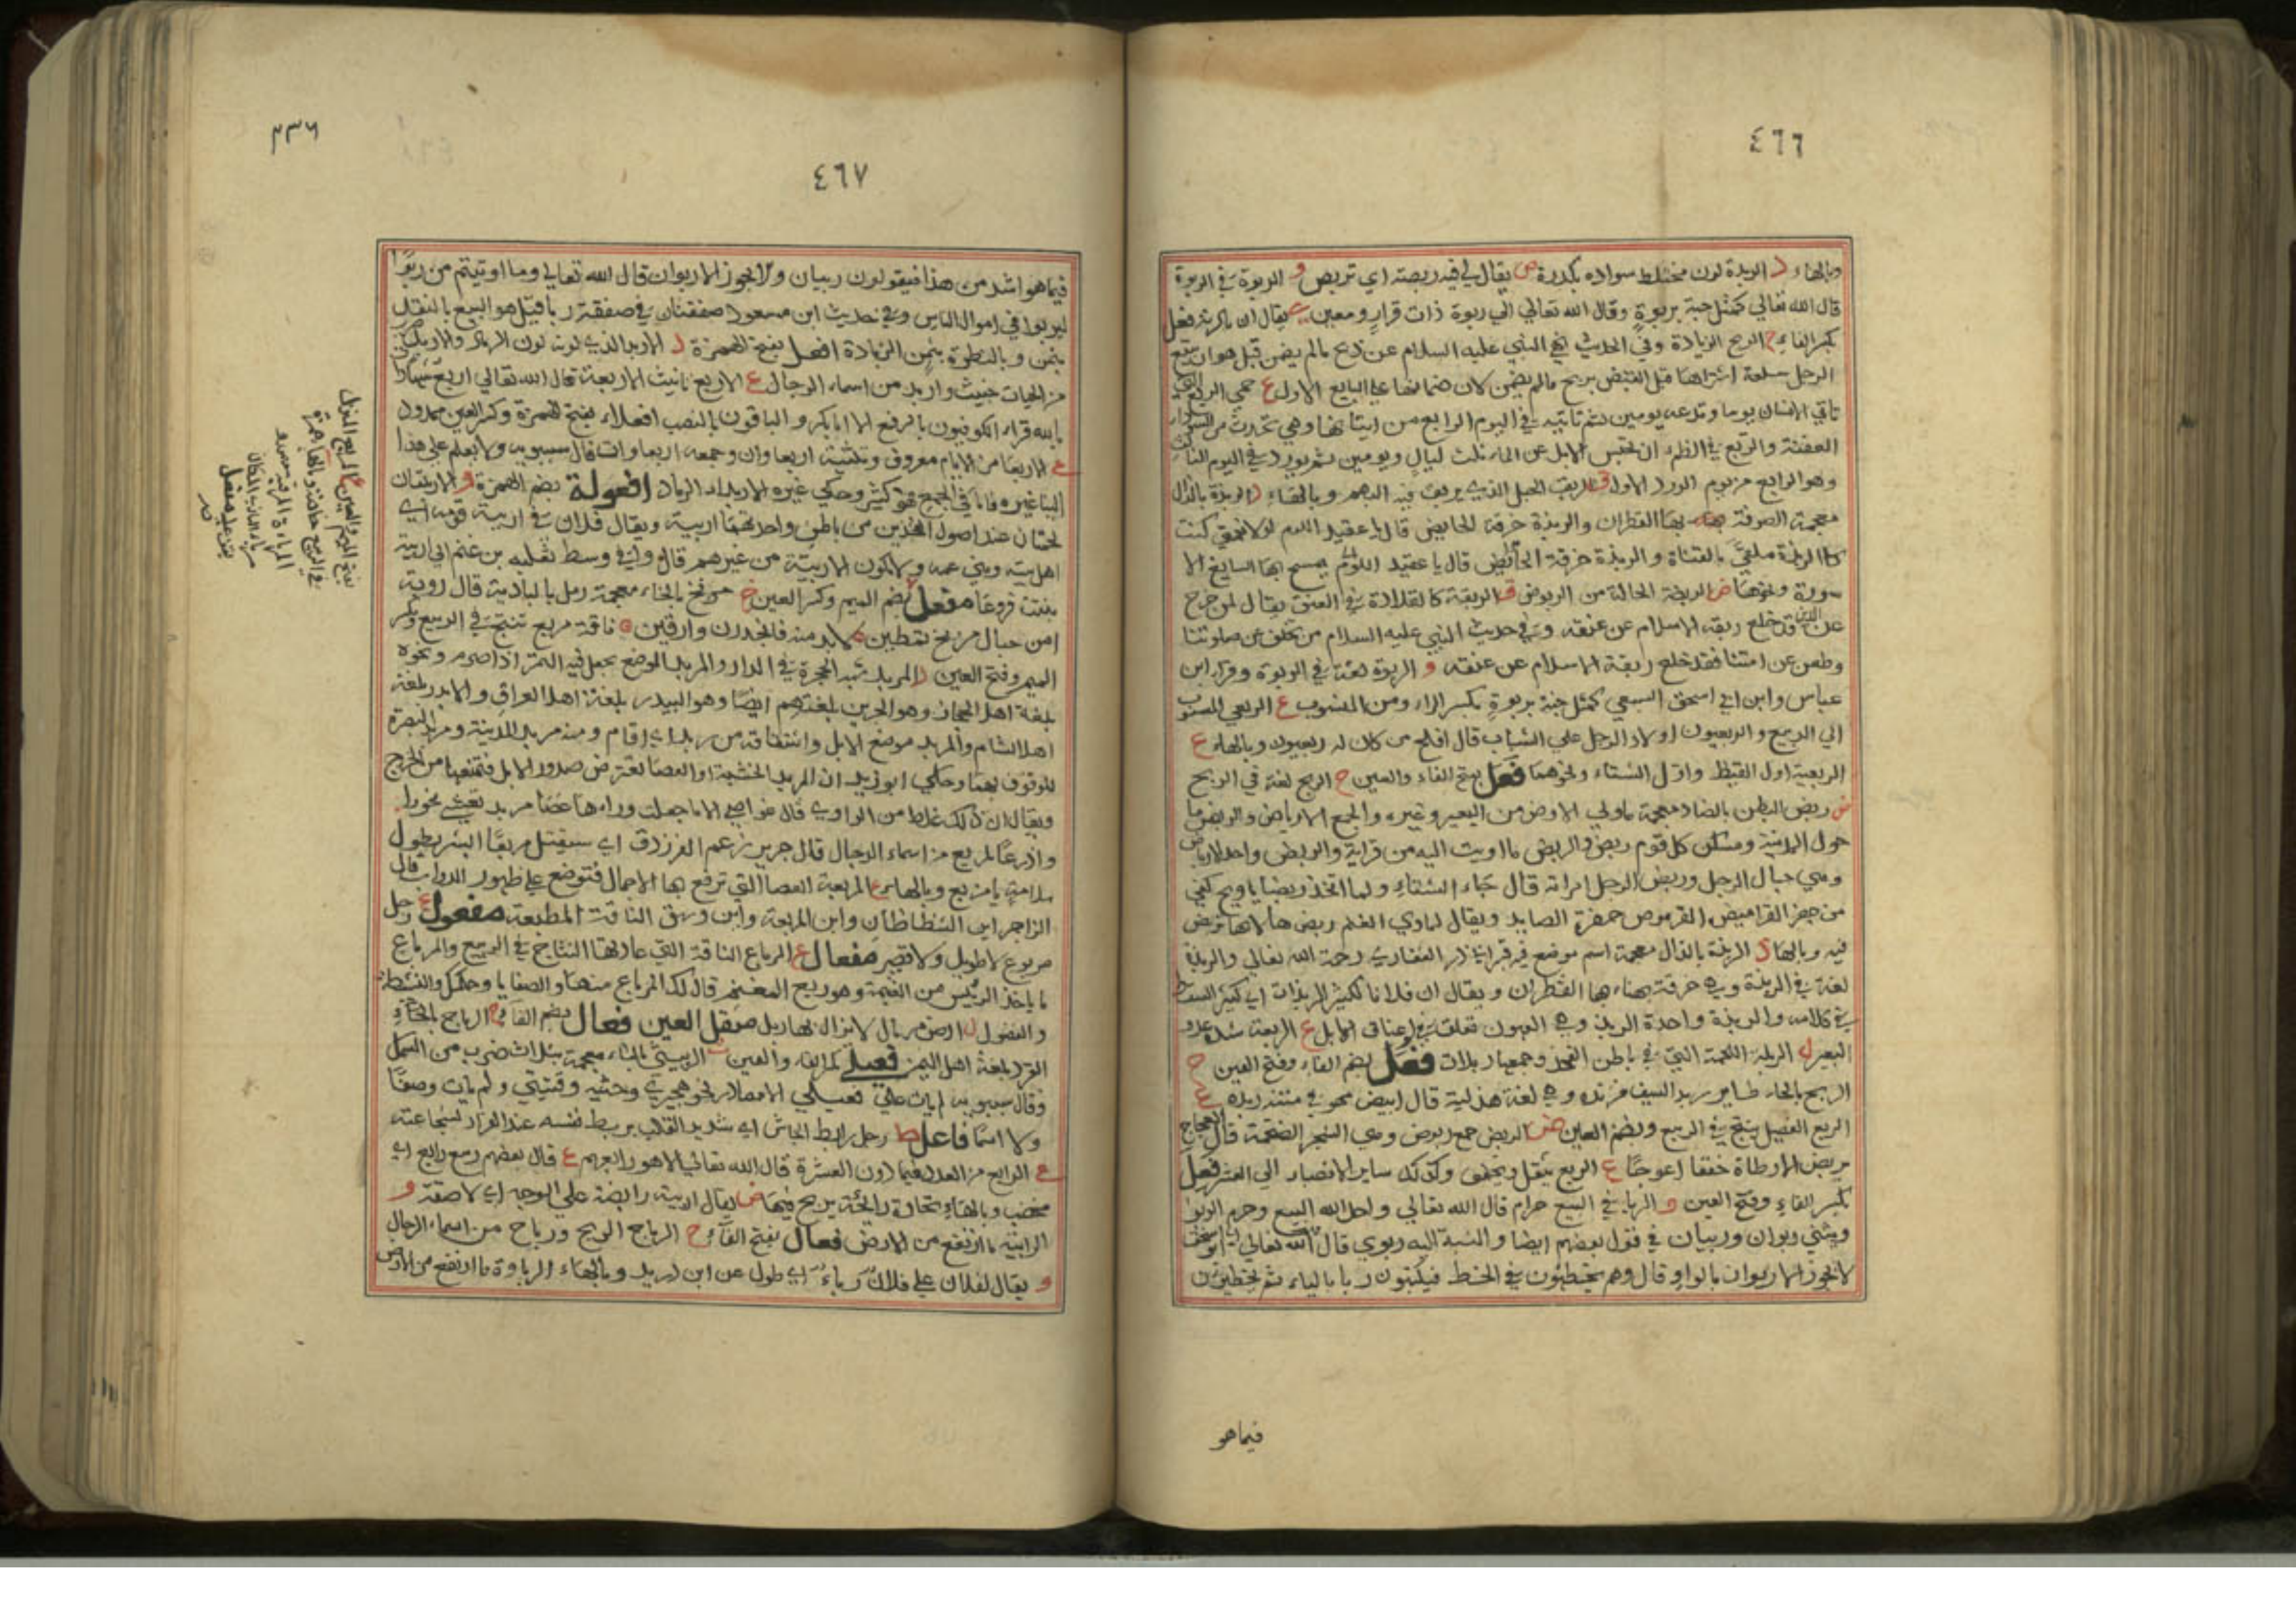 ٤٦٦
وبالهاء د الربدة لون مختلط سواده بكدرة ص يقال لي فيه ربصة اي تربص و الربوة في الربوة
قال الله تعالي كمثل جنة بربوة وقال الله تعالي الي ربوة ذات قرار ومعين يقال ان فعل
بكسر الفاء ح الربح الزيادة وفي الحديث نهي النبي عليه السلام عن ربح مالم يضمن قيل هو ان يبيع
الرجل سلعة اشتراها قبل القبض بربح مالم يضمن لان ضمانها علي البايع الاول ع حمي الربع
تاتي الانسان يوما وتدعه يومين ثم تاتيه في اليوم الرابع من اتيانها وهي تحدث من
العفنة والربع في الظمء ان تحتبس الابل عن الماء ثلث ليال ويومين ثم تورد في اليوم الثالث
وهو الرابع من يوم الورد الاول ق الربق الحبل الذي يربق فيه البهم وبالهاء ذ الربذة بالذال
معجمة الصوفة يهناء بها القطران والربذة خرقة الحايض قال يا عقيد اللوم لولا نعمتي كنت
كالربذة ملقي بالفناة والربذة خرقة الحايض قال يا عقيد اللوم يمسح بها الصايغ الا
سورة ونحوها ض الربضة الحالة من الربوض ق الربقة كالقلادة في العنق يقال لمن خرج
عن الدين قد خلع ربقة الاسلام عن عنقه وفي حديث النبي عليه السلام من تخلف عن صلوتنا
وطعن عن امتنا فقد خلع ربقة الاسلام عن عنقه و الربوة لغة في الربوة وقرا ابن
عباس وابن ابي اسحق السبيعي كمثل جنة بربوة بكسر الراء ومن المنسوب ع الربعي المنسوب
الي الربيع والربعيون اولاد الرجل علي الشباب قال افلح من كان له ربعيون وبالهاء ع
الربعية اول القيظ واول الشتاء ونحوهما فعل بفتح الفاء والعين ح الربح لغة في الربح
ض ربض البطن بالضاد معجمة ماولي الارض من البعير وغيره والجمع الارباض والربض ما
حول المدينة ومسكن كل قوم ربض والربض ما اويت اليه من قراية والربض واحد الارباض
وهي حبال الرجل وربض الرجل امراته قال جاء الشتاء ولما اتخذ ربضا ياويح كفي
من حفر القراميص القرموص حفرة الصايد ويقال لماوي الغنم ربض ها لانها تربض
فيه وبالهاء ذ الربذة بالذال معجمة اسم موضع فيه قبر ابي ذر الغفاري رحمة الله تعالي والربذة
لغة في الربذة وهي خرقة يهناء بها القطران ويقال ان فلانا لكثير الربذات اي كثير السقط
في كلامه والربذة واحدة الربذ وهي العهون تعلق في اعناق الابل ع الربعة شدة عدو
البعير ل الربلة اللحمة التي في باطن الفخذ وجمعها ربلات فعل بضم الفاء وفتح العين ح
الربح بالحاء طاير ربد السيف فرنده وهي لغة هذلية قال ابيض مهو في متنه ربد ع
الربع الفصيل ينتج في الربيع وبضم العين ض الربض جمع ربوض وهي الشجر الضخمة قال العجاج
بربض الارطاة حقفا اعوجا ع الربع يثقل ويخفف وكذلك ساير الانصباء الي العشر فعل
بكسر الفاء وفتح العين و الربا في البيع حرام قال الله تعالي واحل الله البيع وحرم الربوا
ويثني ربوان وربيان في قول بعضهم ايضا والنسبة اليه ربوي قال الله تعالي ابو اسحق
لا يجوز الا ربوان بالواو قال وهم يخطئون في الخط فيكتبون ربا بالياء ثم يخطئون
فيما هو
٤٦٧
٢٣٦
فيما هو اشد من هذا فيقولون ربيان ولا يجوز الا ربوان قال الله تعالي وما اوتيتم من ربوا
ليربوا في اموال الناس وفي حديث ابن مسعود صفقتان في صفقة ربا قيل هو البيع بالنقد
بثمن وبالنظرة بثمن الزيادة افعل بفتح الهمزة د الاربد الذي لونه لون الرماد والاربد
من الحيات خبيث واربد من اسماء الرجال ع الاربع تانيث الاربعة قال الله تعالي اربع شهادات
بالله قراء الكوفيون بالرفع الا ابا بكر والباقون بالنصب افعلاء بفتح الهمزة وكسر العين ممدود
ع الاربعا من الايام معروف وتثنيته اربعاوان وجمعه اربعاوات قال سيبويه ولا يعلم علي هذا
البنا غيره فاما في الجمع فهو كثير وحكي غيره الاربداء الرماد افعولة بضم الهمزة و الاربيتان
لحمتان عند اصول الفخذين من باطن واحدتهما اربية ويقال فلان في اربية قومه اي
اهل بيته وبني عمه ولا تكون الاربية من غيرهم قال واني وسط ثعلبه بن غنم الي اربية
نبتت فروعا مفعل بضم الميم وكسر العين خ مربخ بالخاء معجمة رمل بالبادية قال روبة
امن حبال مربخ تمطين لابد منه فانحدرن وارقين ع ناقة مربع تنتج في الربيع وبكسر
الميم وفتح العين د المربد شبه الحجرة في الدار والمربد الموضع يجعل فيه التمر اذا صرم ونحوه
بلغة اهل الحجاز وهو الجرين بلغتهم ايضا وهو البيدر بلغة اهل العراق والاندر بلغة
اهل الشام والمربد موضع الابل واشتقاقه من ربد اي اقام ومنه مربد المدينة ومربد البصرة
للوقوف بهما وحكي ابو زيد ان المربد الخشبة او العصا تعترض صدور الابل فتمنعها من الخروج
ويقال ان ذلك غلط من الراوي قال عواصي الا ما جعلت وراءها عصا مربد تغشي نحورا
واذرعا المربع من اسماء الرجال قال جرير زعم الفرزدق اي سيقتل مربعا ابشر بطول
سلامة يا مربع وبالهاء ع المربعة العصا التي ترفع بها الاحمال فتوضع علي ظهور الدواب قال
الزاجر اين الشظاظان واين المربعة واين وسق الناقة المطبعة مفعول ع رجل
مربوع لا طويل ولا قصير مفعال ع المرباع الناقة التي عادتها النتاج في الربيع والمرباع
ما ياخذ الرئيس من الغنيمة وهو ربع المغنم قال لك المرباع منها والصفايا وحكمك والنشيطة
والفضول ل ارض مربال لا يزال بها ربل مثقل العين فعال بضم الفاء ح الرباح بالحاء
القرد بلغة اهل اليمن فعيلي بكسر الفاء والعين ث الربيثي بالثاء معجمة بثلاث ضرب من السمك
وقال سيبويه لم يات علي فعيلي الا مصادر نحو هجيري وحثيثي وقتيتي ولم يات وصفا
ولا اسما فاعل ط رجل رابط الجاش اي شديد القلب يربط نفسه عند الفرار لشجاعته
ع الرابع من العدد فيما دون العشرة قال الله تعالي الا هو رابعهم ع قال بعضهم ربيع رابع اي
مخصب وبالهاء ح تجارة رابحة يربح فيها ض يقال اربية رابضة علي الوجه اي لاصقة و
الرابية ما ارتفع من الارض فعال بفتح الفاء ح الرباح الربح ورباح من اسماء الرجال
و يقال لفلان علي فلان رباء اي طول عن ابن دريد وبالهاء الرباوة ما ارتفع من الارض
بفتح الميم والعين ع المربع المنزل
في الربيع خاصة وبالهاء همزة